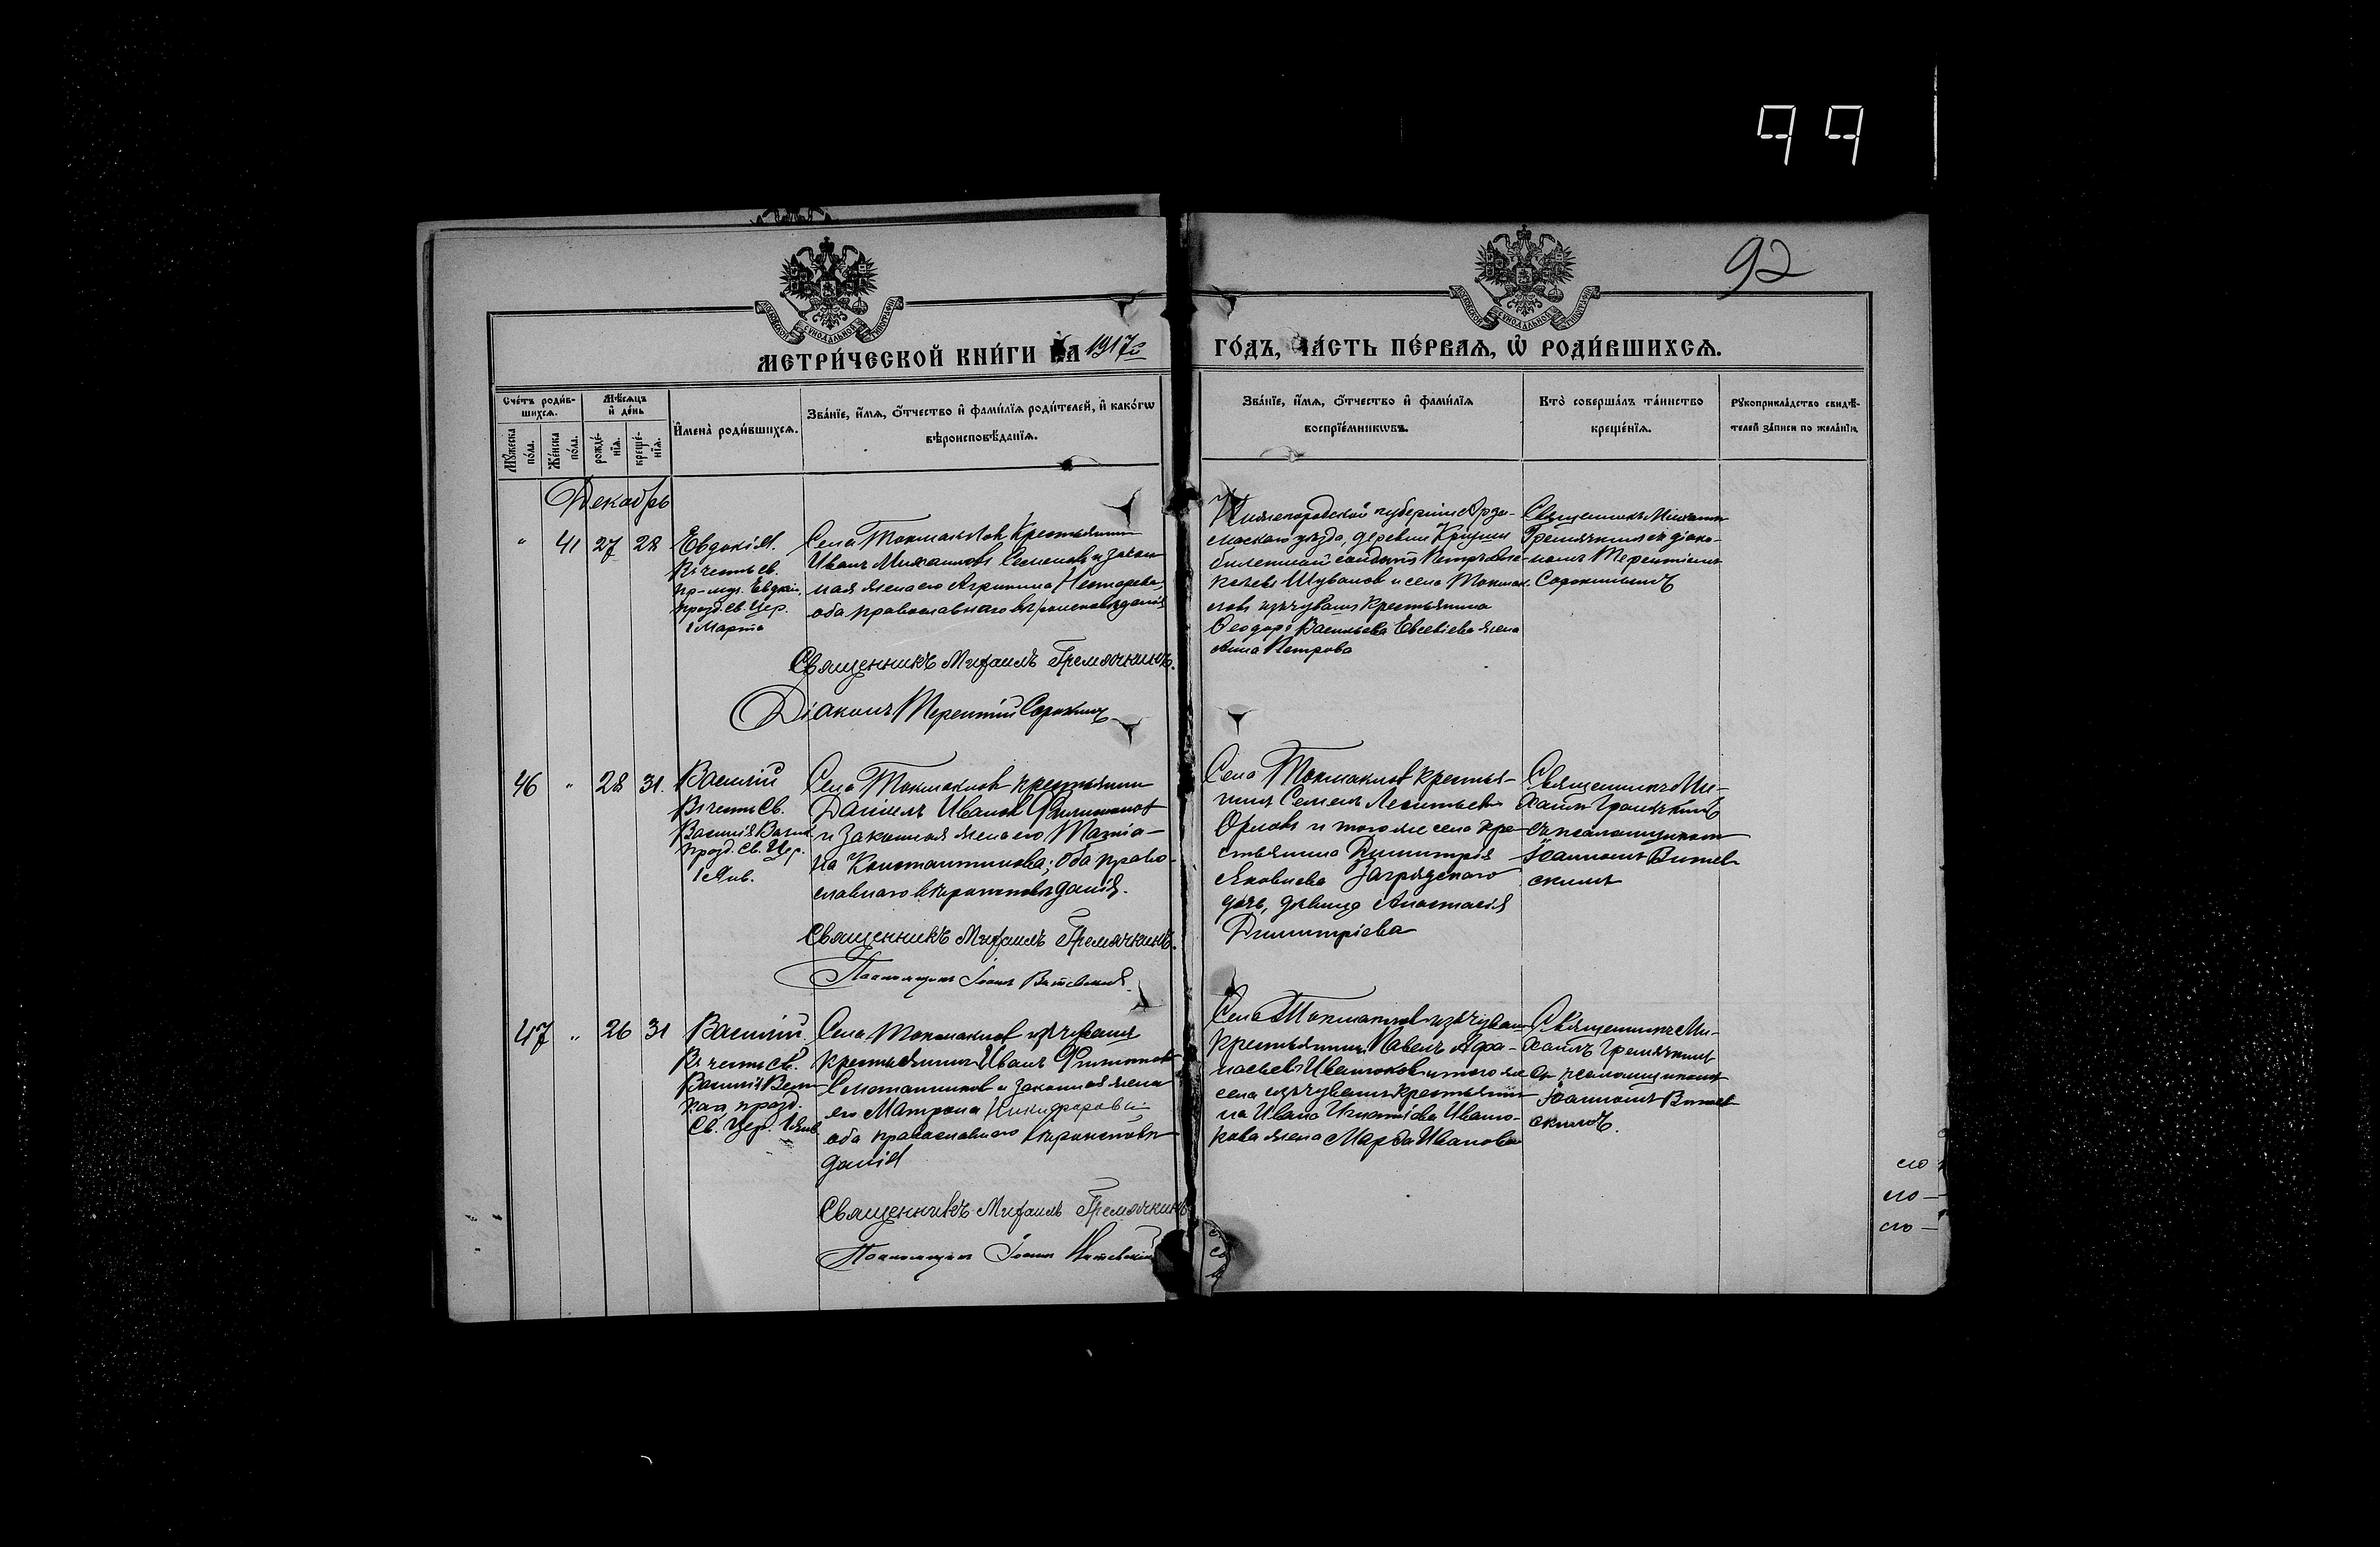 99
92
МЕТРИ́ЧЕСКОЙ КНИ́ГИ НА 1917й ГО́ДЪ, ЧА́СТЬ ПЕ́РВАѦ, Ѡ҆ РОДИ́ВШИХСѦ.
Сче́тъ роди́в-
шихсѧ.
Мꙋ́жеска
по́ла.
Же́нска
по́ла.
Мѣ́сѧцъ
и҆ де́нь
рожде́-
нїѧ.
креще́-
нїѧ.
И҆мена̀ роди́вшихсѧ.
Зва́нїе, и҆́мѧ, ѻ҆́тчество и҆ фами́лїѧ роди́телей, и҆ како́гѡ
вѣроисповѣ́данїѧ.
Зва́нїе, и҆́мѧ, ѻ҆́тчество и҆ фами́лїѧ
воспрїе́мникѡвъ.
Кто̀ соверша́лъ та́инство
креще́нїѧ.
Рꙋкоприкла́дство свидѣ́-
телей за́писи по жела́нїю.
Декабрь
" 41 27 28
Евдокія.
Въ честь св.
пр-муч. Евдок.
празд. св. Цер.
1 Марта
Села Токмаклов крестьянинъ
Иванъ Михаиловъ Семеновъ и закон
ная жена его Агрипина Несторева,
оба православнаго вѣроисповѣданія
Священникъ Михаилъ Гремячкинъ.
Діаконъ Терентій Сорокинъ
Нижегородской губерніи Арза-
маскаго уѣзда, деревни
билетный солдатъ Петръ
Шувалов и села Токмак-
лова изъ чувашъ крестьянина
Ѳеодора Васильева Евсевіева жена
Анна Петрова
Священникъ Михаилъ
Гремячкинъ съ діако-
номъ Терентіемъ
Сорокинымъ
46 " 28 31.
Василій
Въ честь Св.
Василія Велик.
празд. св. Цер.
1 Янв.
Села Токмаклов крестьянинъ
Даніилъ Иванов Филимонов
и законная жена его Татіа-
на Константинова; оба право-
славнаго вѣроисповѣданія.
Священникъ Михаилъ Гремячкинъ.
Псаломщикъ Іоаннъ Витевскій.
Села Токмаклов крестья-
нинъ Семенъ Леонтьевъ
Орловъ и тогоже села кре-
стьянина Димитрія
Яковлева Загрядскаго
дочь, дѣвица Анастасія
Димитріева
Священникъ Ми-
хаилъ Гремячкинъ
съ псаломщикомъ
Іоанномъ Витев-
скимъ
47 " 26 31
Василій.
Въ честь Св.
Василія Вели-
каго, празд.
Св. Цер. 1 Янв
Села Токмаклов изъ чувашъ
крестьянинъ Иванъ Филиповъ
и законная жена
его Матрона Никифорова;
оба православнаго вѣроисповѣ-
данія
Священникъ Михаилъ Гремячкинъ
Псаломщикъ Іоаннъ Витевскій
Села Токмаклов изъ чувашъ
крестьянинъ Павелъ Афа-
насьевъ Ивашоковъ и того же
села изъ чувашъ крестьяни-
на Ивана Игнатіева Ивашо-
кова жена Марѳа Иванова
Священникъ Ми-
хаилъ Гремячкинъ
съ псаломщикомъ
Іоанномъ Витев-
скимъ.